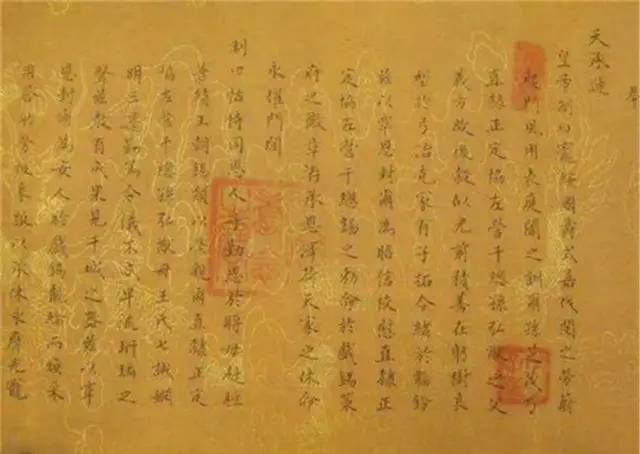 奉
天承運
皇帝制曰寵綏國爵式嘉代閥之勞蔚
起門風用表庭闈之訓爾孫芝茂乃
直隸正定協左營千總孫弘猷之父
義方啟後穀似光前積善在躬樹良
型於弓冶克家有子拓令緒於韜鈐
茲以覃恩封爾為昭信校尉直隸正
定協左營千總錫之勅命於戲錫策
府之徽章洊承恩澤荷天家之休命
永耀門閭
制曰怙恃同恩人子勤思於將母赳桓
著績王朝錫類以榮親爾直隸正定
協左營千總孫弘猷母王氏七誡嫻
明三遷勤篤令儀不忒早流珩瑀之
聲慈教有成果見干城之器茲以覃
恩封爾為安人於戲錫龍綸而煥采
用答劬勞被象服以承休永膺光寵